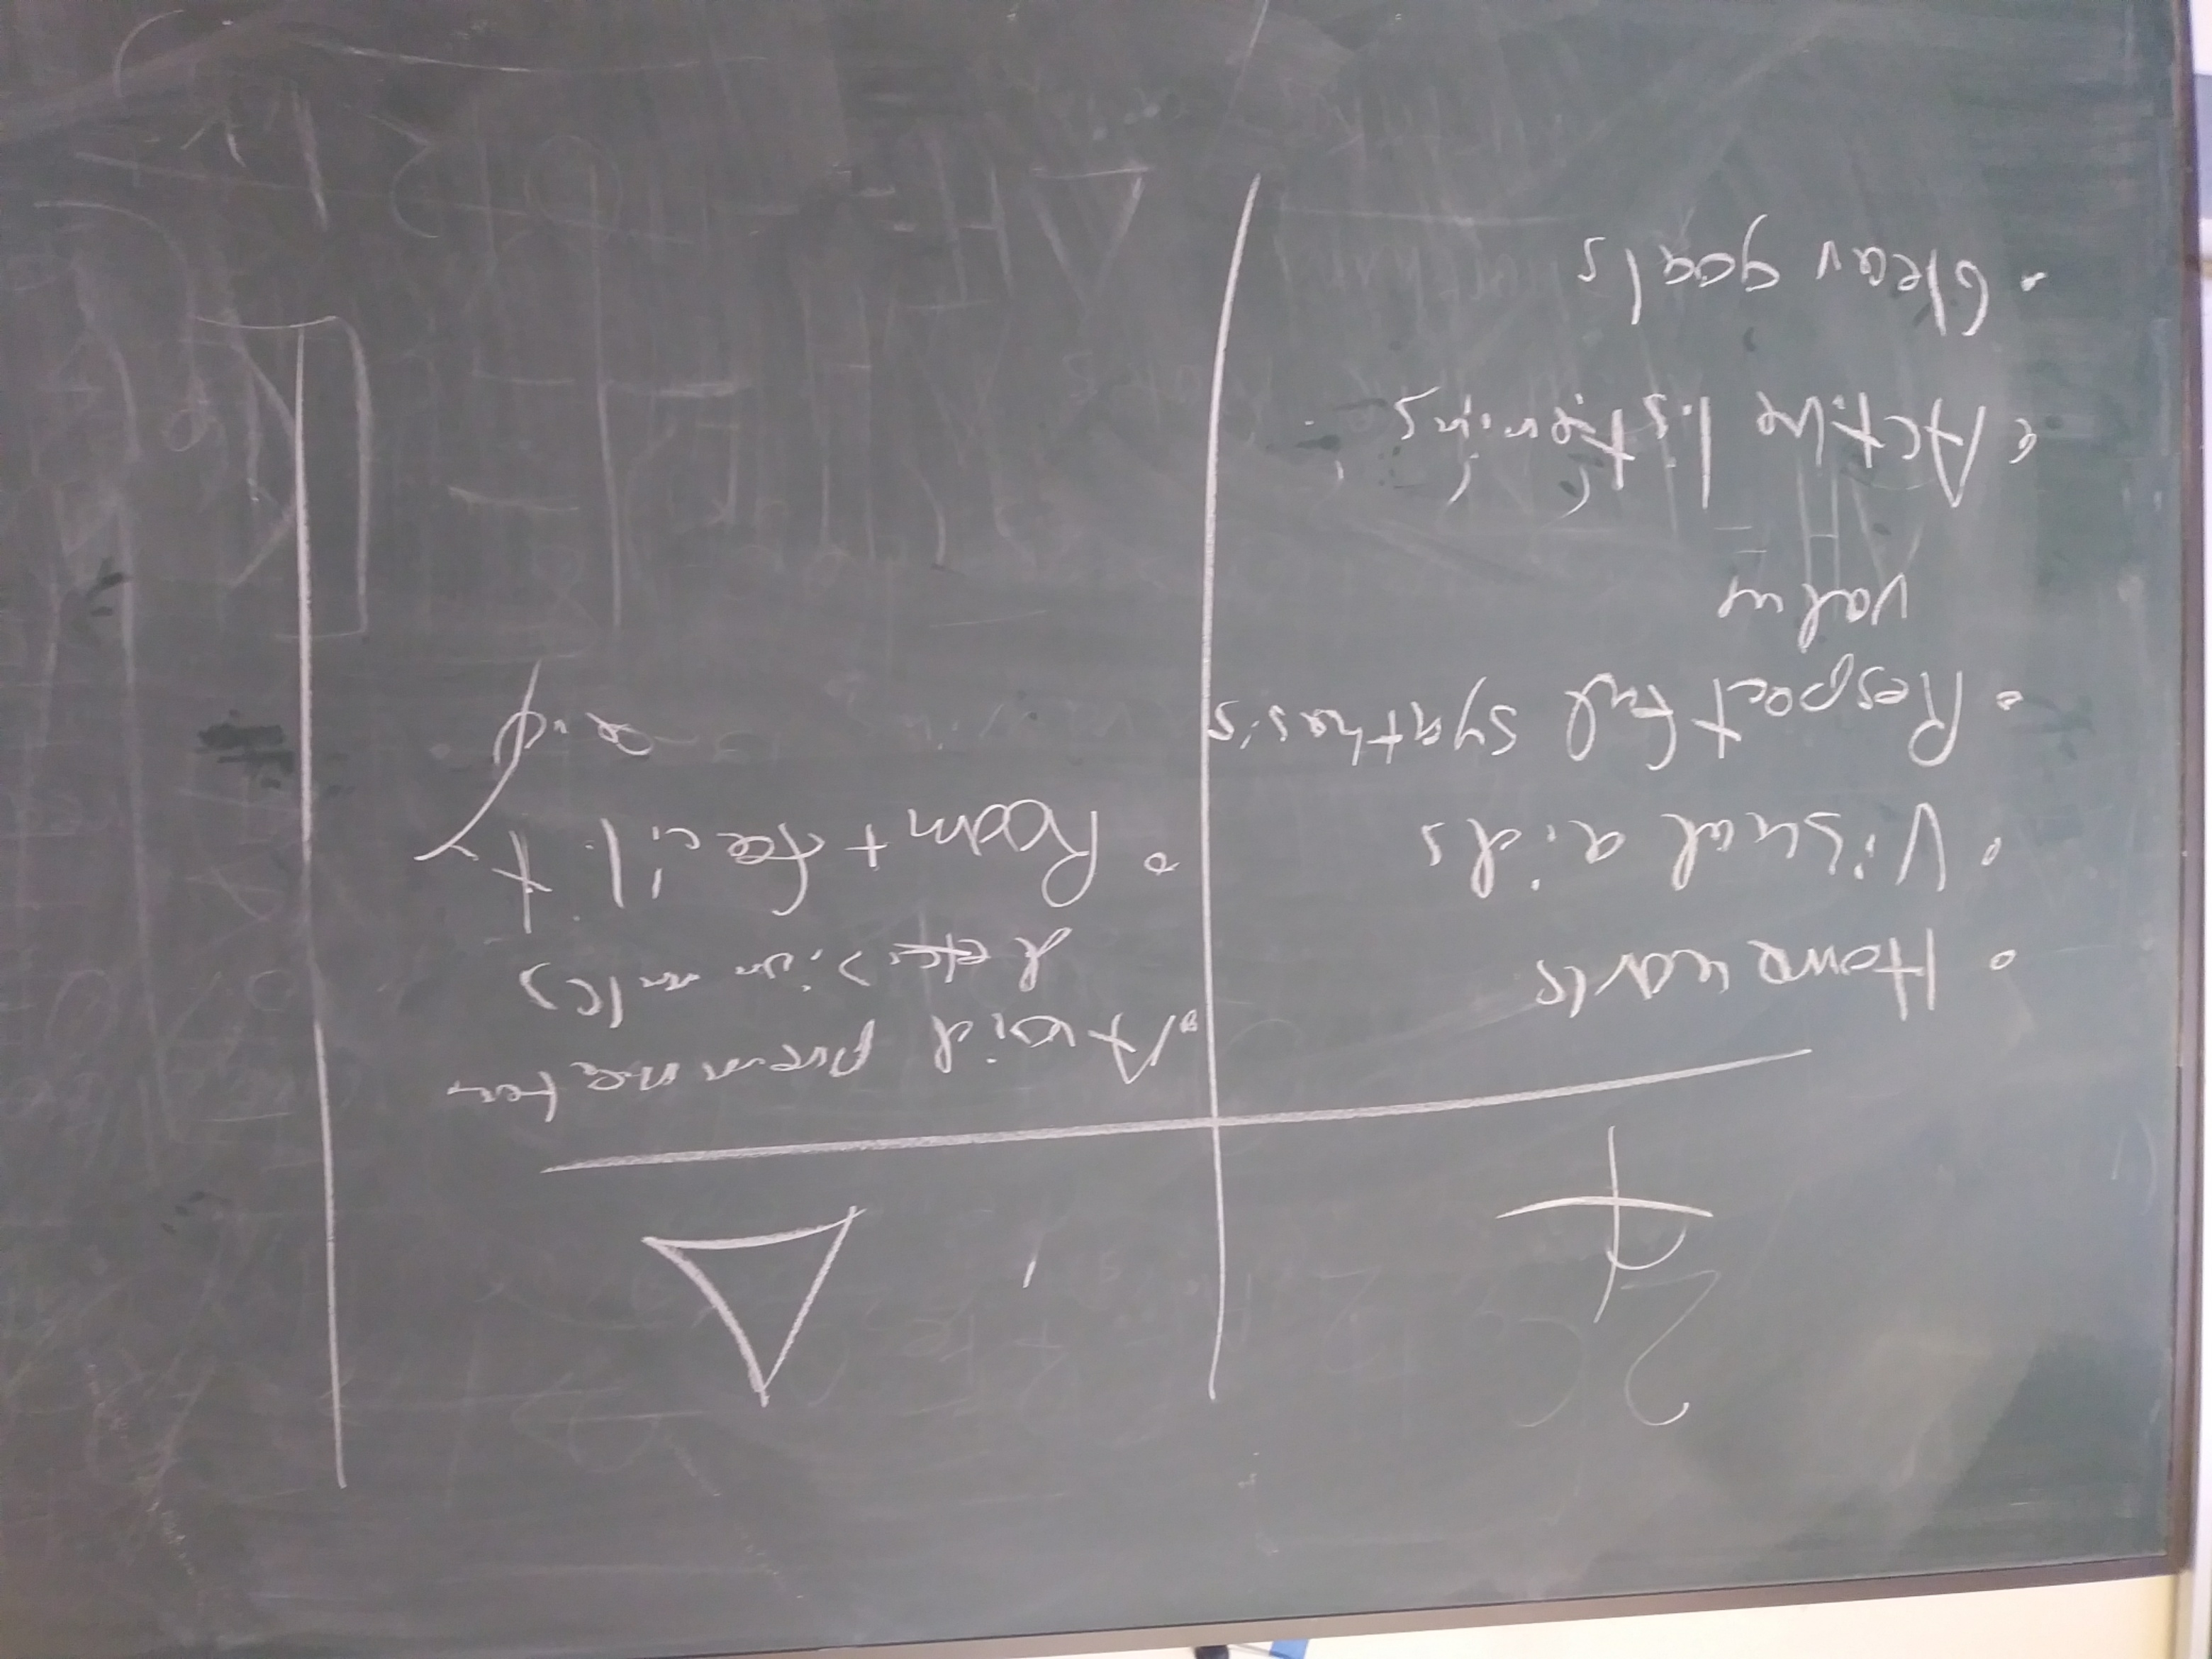 +
• Homework
• Visual aids
• Respectful synthesis
value
• Active listening
• Clear goals
Δ
• Avoid premature
• Room + facility